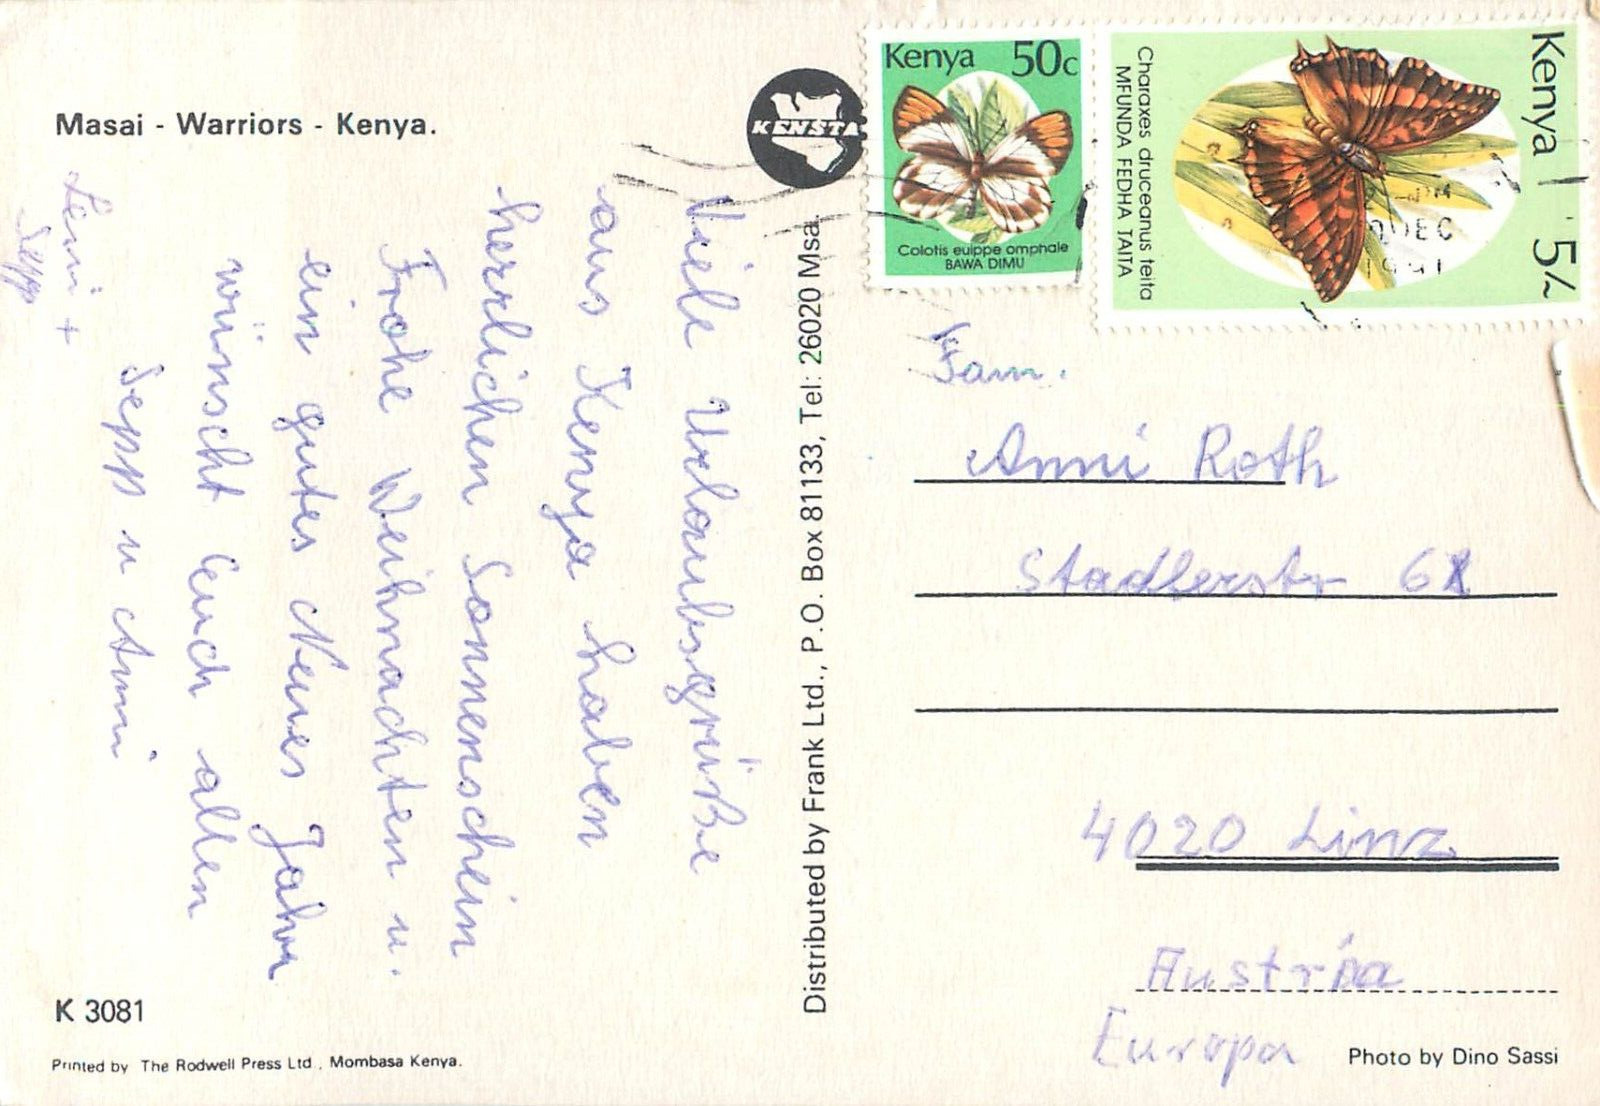 Masai - Warriors - Kenya.
KENSTA
Viele Urlaubsgrüße
aus Kenya haben
herrlichen Sonnenschein
Frohe Weihnachten u.
ein gutes Neues Jahr
wünscht Euch allen
Sepp u Anni
Leni +
Sepp
K 3081
Printed by The Rodwell Press Ltd., Mombasa Kenya.
Distributed by Frank Ltd., P.O. Box 81133, Tel: 26020 Msa.
Kenya 50c
Colotis euippe omphale
BAWA DIMU
Kenya 5/-
Charaxes druceanus teita
MFUNDA FEDHA TAITA
DEC
Fam.
Anni Roth
Stadlerstr
4020 Linz
Austria
Europa
Photo by Dino Sassi